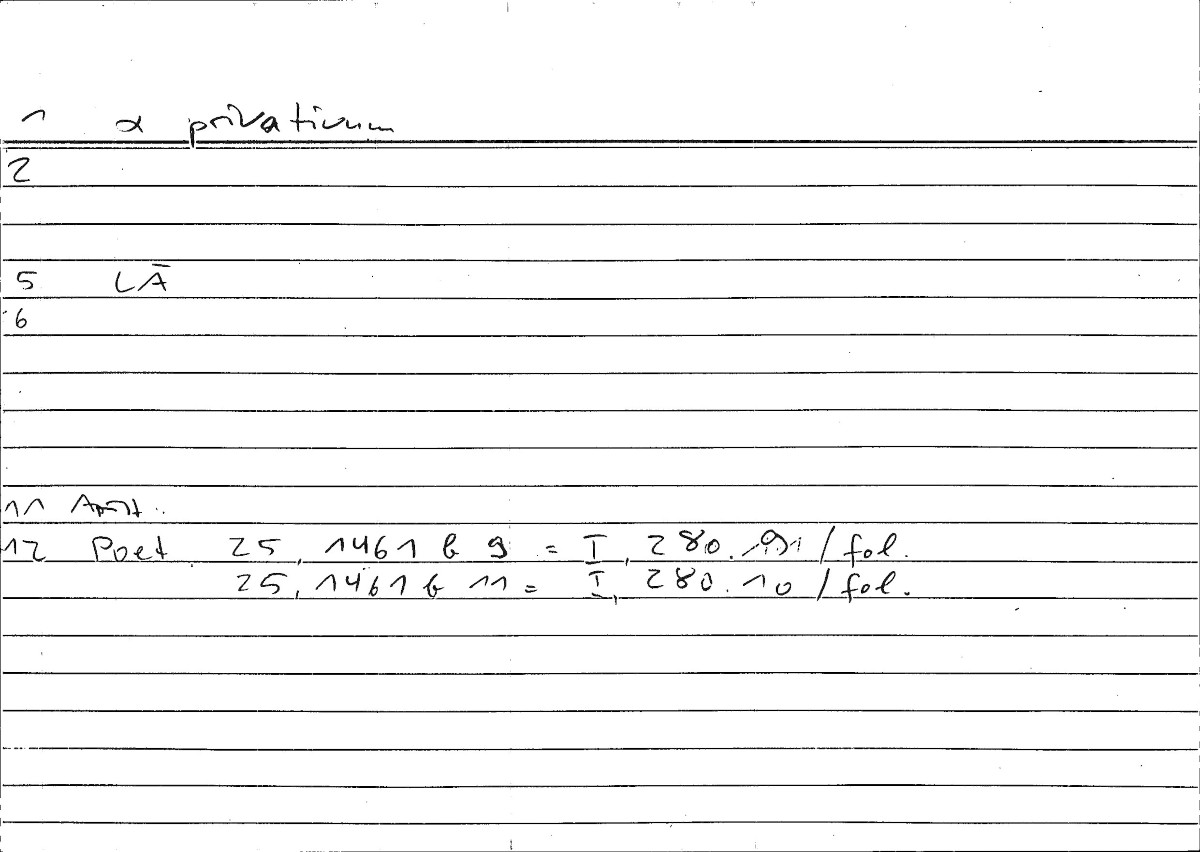 1 α privativum
2
5 LĀ
6
11 Arist.
12 Poet 25, 1461 b 9 = I, 280. /fol.
25, 1461 b 11 = I, 280.10 /fol.